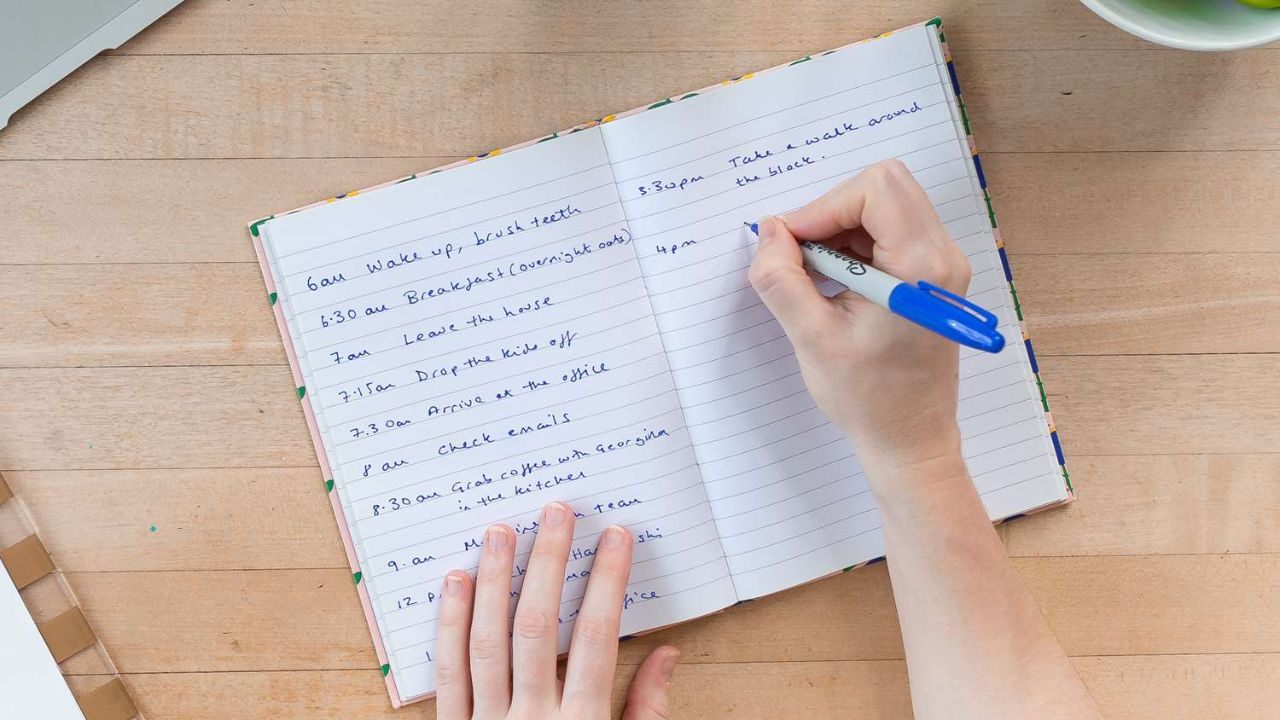 6am Wake up, brush teeth
6.30 am Breakfast (overnight oats)
7am Leave the house
7.15am Drop the kids off
7.30am Arrive at the office
8 am Check emails
8.30 am Grab coffee with Georgina
in the kitchen
9. am team
12
3.30pm Take a walk around
the block.
4pm
Sharpie